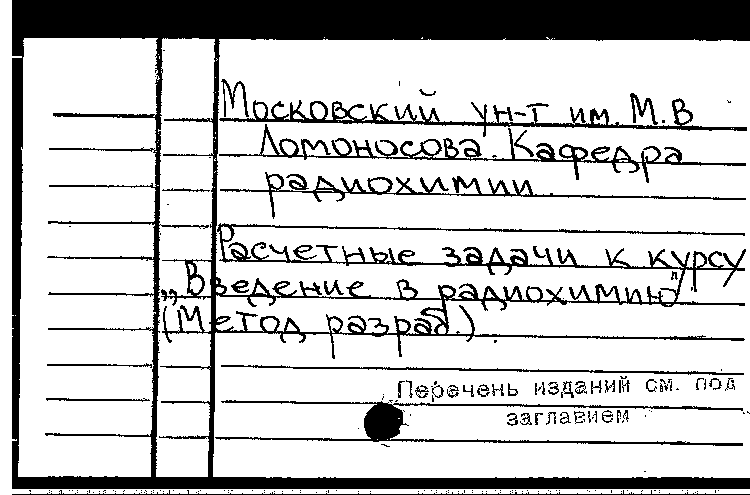 Московский ун-т им. М.В
Ломоносова. Кафедра
радиохимии.
Расчетные задачи к курсу
„Введение в радиохимию".
(Метод. разраб.).
Перечень изданий см. под
заглавием